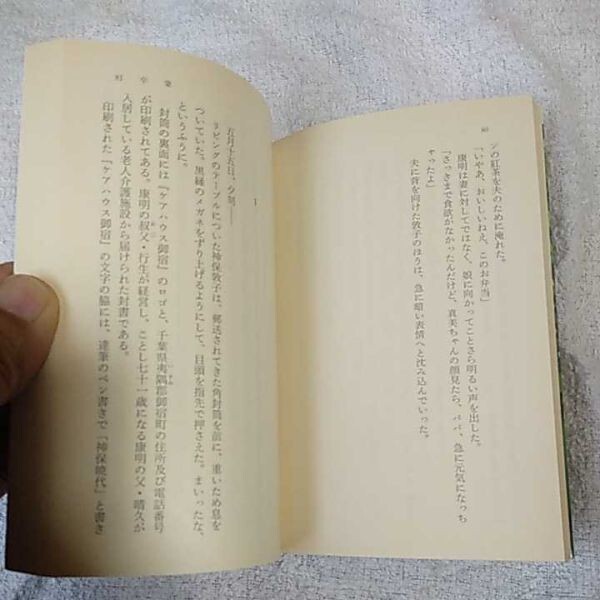 80
ジの紅茶を夫のために淹れた。
「いやあ、おいしいねえ、このお弁当」
康明は妻に対してではなく、娘に向かってことさら明るい声を出した。
「さっきまで食欲がなかったんだけど、真美ちゃんの顔見たら、パパ、急に元気になっち
ゃったよ」
夫に背を向けた敦子のほうは、急に暗い表情へと沈み込んでいった。
卒業
81
1
五月十五日、夕刻——
リビングのテーブルについた神保敦子は、郵送されてきた角封筒を前に、重いため息を
ついていた。黒縁のメガネをずり上げるようにして、目頭を指先で押さえた。まいったな、
というふうに。
封筒の裏面には『ケアハウス御宿』のロゴと、千葉県夷隅郡御宿町の住所及び電話番号
が印刷されてある。康明の叔父・行生が経営し、ことし七十一歳になる康明の父・晴久が
入居している老人介護施設から届けられた封書である。
印刷された『ケアハウス御宿』の文字の脇には、達筆のペン書きで「神保暁代」と書き